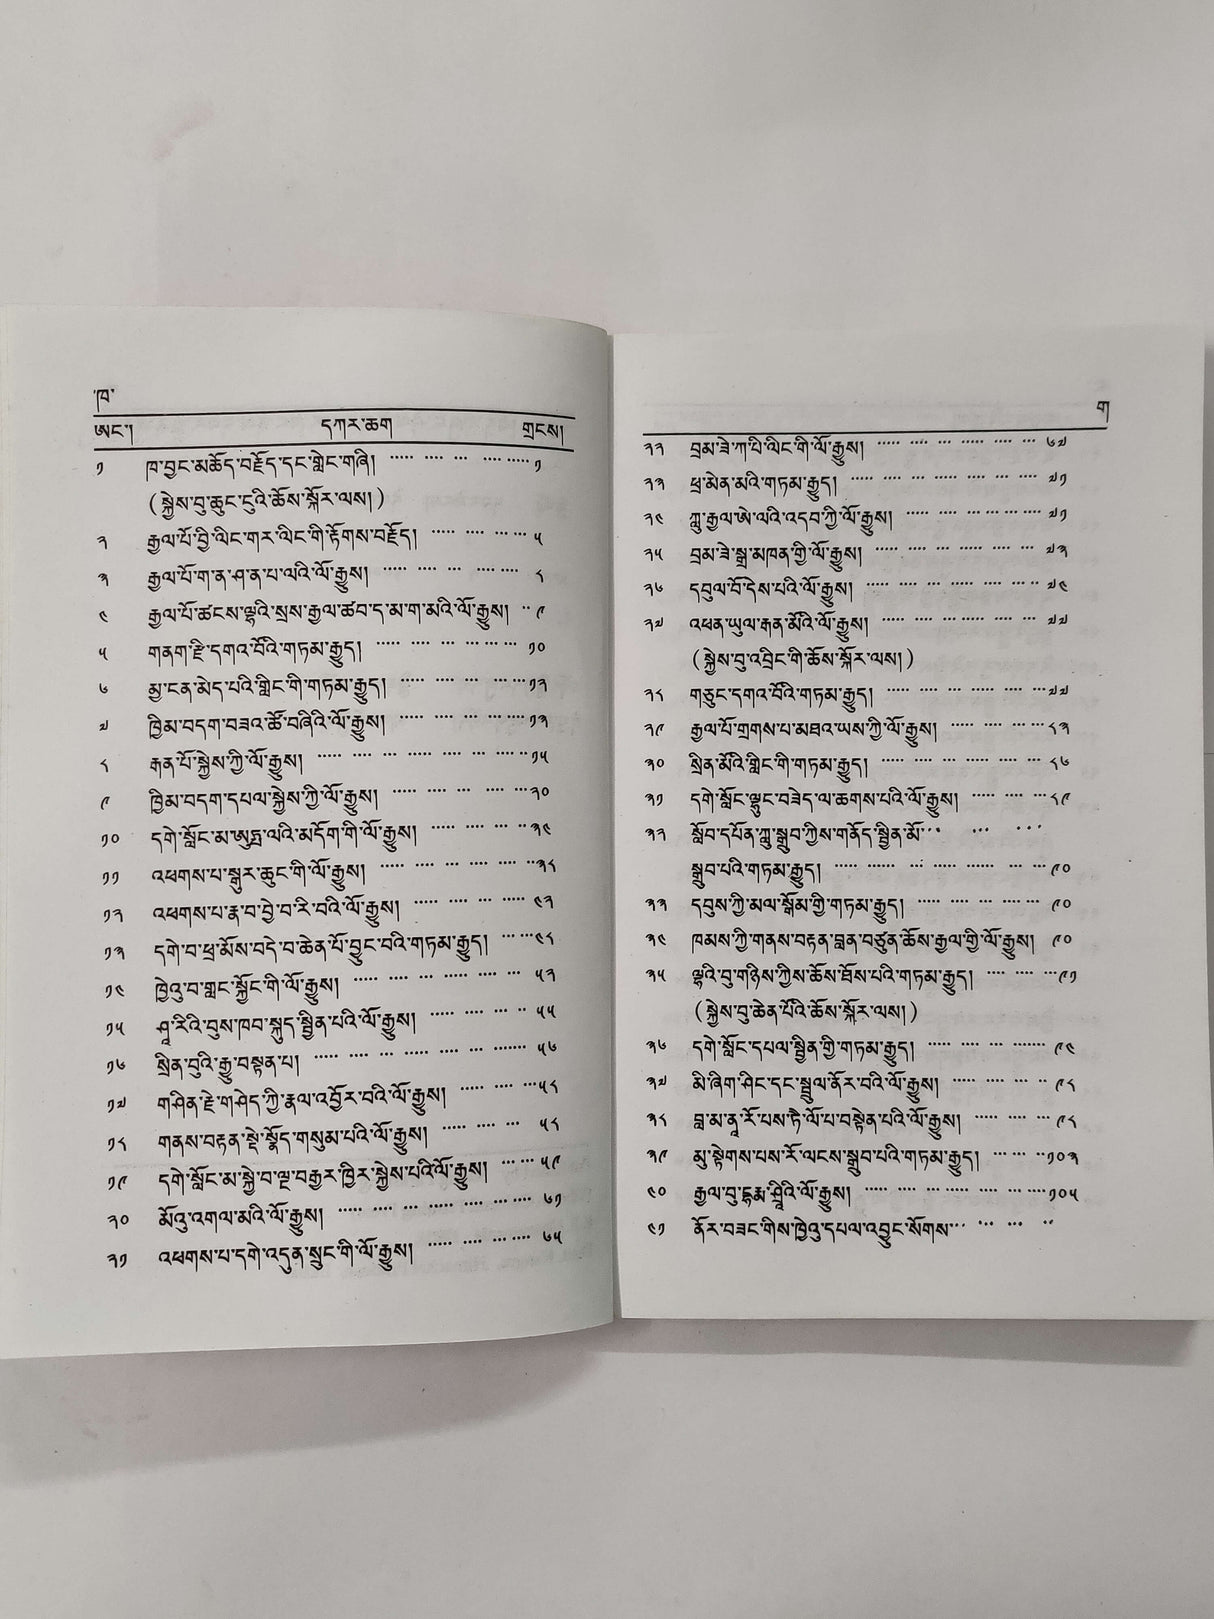 ཁ
ཨང་། དཀར་ཆག གྲངས།
༡ ཁ་བྱང་མཆོད་བརྗོད་དང་གླེང་གཞི། ༡
(སྐྱེས་བུ་ཆུང་ངུའི་ཆོས་སྐོར་ལས།)
༢ རྒྱལ་པོ་བྱི་ལིང་གར་ལིང་གི་རྟོགས་བརྗོད། ༥
༣ རྒྱལ་པོ་ག་ན་ཤ་ན་པ་ལའི་ལོ་རྒྱུས། ༨
༤ རྒྱལ་པོ་ཚངས་ལྷའི་སྲས་རྒྱལ་ཚབ་ད་མ་ག་མའི་ལོ་རྒྱུས། ༩
༥ གནག་རྫི་དགའ་བོའི་གཏམ་རྒྱུད། ༡༠
༦ མྱ་ངན་མེད་པའི་གླིང་གི་གཏམ་རྒྱུད། ༡༢
༧ ཁྱིམ་བདག་བཟའ་ཚོ་བཞིའི་ལོ་རྒྱུས། ༡༣
༨ རྒན་པོ་སྐྱེས་ཀྱི་ལོ་རྒྱུས། ༡༥
༩ ཁྱིམ་བདག་དཔལ་སྐྱེས་ཀྱི་ལོ་རྒྱུས། ༢༠
༡༠ དགེ་སློང་མ་ཨུཏྤ་ལའི་མདོག་གི་ལོ་རྒྱུས། ༣༤
༡༡ འཕགས་པ་སྒུར་ཆུང་གི་ལོ་རྒྱུས། ༣༨
༡༢ འཕགས་པ་རྣ་བ་བྱེ་བ་རི་བའི་ལོ་རྒྱུས། ༤༢
༡༣ དགེ་བ་ཕྲ་མོས་བདེ་བ་ཆེན་པོ་བྱུང་བའི་གཏམ་རྒྱུད། ༤༨
༡༤ ཁྱེའུ་བ་གླང་སྐྱོང་གི་ལོ་རྒྱུས། ༥༢
༡༥ ཤཱ་རིའི་བུས་ཁབ་སྐུད་སྦྱིན་པའི་ལོ་རྒྱུས། ༥༥
༡༦ སྲིན་བུའི་རྒྱུ་བསྟན་པ། ༥༦
༡༧ གཤིན་རྗེ་གཤེད་ཀྱི་རྣལ་འབྱོར་བའི་ལོ་རྒྱུས། ༥༨
༡༨ གནས་བརྟན་སྡེ་སྣོད་གསུམ་པའི་ལོ་རྒྱུས། ༥༨
༡༩ དགེ་སློང་མ་སྐྱེ་བ་ལྔ་བརྒྱར་ཁྱིར་སྐྱེས་པའི་ལོ་རྒྱུས། ༥༩
༢༠ མོའུ་འགལ་མའི་ལོ་རྒྱུས། ༦༡
༢༡ འཕགས་པ་དགེ་འདུན་སྲུང་གི་ལོ་རྒྱུས། ༦༥
ག
༢༢ བྲམ་ཟེ་ཀ་པི་ལིང་གི་ལོ་རྒྱུས། ༦༧
༢༣ ཕྲ་མེན་མའི་གཏམ་རྒྱུད། ༧༡
༢༤ ཀླུ་རྒྱལ་ཨེ་ལའི་འདབ་ཀྱི་ལོ་རྒྱུས། ༧༡
༢༥ བྲམ་ཟེ་སྒྲ་མཁན་གྱི་ལོ་རྒྱུས། ༧༣
༢༦ དབུལ་བོ་དེས་པའི་ལོ་རྒྱུས། ༧༤
༢༧ འཕན་ཡུལ་རྒན་མོའི་ལོ་རྒྱུས། ༧༧
(སྐྱེས་བུ་འབྲིང་གི་ཆོས་སྐོར་ལས།)
༢༨ གཅུང་དགའ་བོའི་གཏམ་རྒྱུད། ༧༧
༢༩ རྒྱལ་པོ་གྲགས་པ་མཐའ་ཡས་ཀྱི་ལོ་རྒྱུས། ༨༣
༣༠ སྲིན་མོའི་གླིང་གི་གཏམ་རྒྱུད། ༨༦
༣༡ དགེ་སློང་ལྷུང་བཟེད་ལ་ཆགས་པའི་ལོ་རྒྱུས། ༨༩
༣༢ སློབ་དཔོན་ཀླུ་སྒྲུབ་ཀྱིས་གནོད་སྦྱིན་མོ་
སྒྲུབ་པའི་གཏམ་རྒྱུད། ༩༠
༣༣ དབུས་ཀྱི་མལ་སྒོམ་གྱི་གཏམ་རྒྱུད། ༩༠
༣༤ ཁམས་ཀྱི་གནས་བརྟན་བླན་བཙུན་ཆོས་རྒྱལ་གྱི་ལོ་རྒྱུས། ༩༠
༣༥ ལྷའི་བུ་གཉིས་ཀྱིས་ཆོས་ཐོས་པའི་གཏམ་རྒྱུད། ༩༡
(སྐྱེས་བུ་ཆེན་པོའི་ཆོས་སྐོར་ལས།)
༣༦ དགེ་སློང་དཔལ་སྦྱིན་གྱི་གཏམ་རྒྱུད། ༩༤
༣༧ མི་ཞིག་ཤིང་དང་སྦྲུལ་ནོར་བའི་ལོ་རྒྱུས། ༩༨
༣༨ བླ་མ་ནཱ་རོ་པས་ཏཻ་ལོ་པ་བསྟེན་པའི་ལོ་རྒྱུས། ༩༨
༣༩ མུ་སྟེགས་པས་རོ་ལངས་སྒྲུབ་པའི་གཏམ་རྒྱུད། ༡༠༣
༤༠ རྒྱལ་བུ་དྷརྨ་ཤྲཱིའི་ལོ་རྒྱུས། ༡༠༥
༤༡ ནོར་བཟང་གིས་ཁྱེའུ་དཔལ་འབྱུང་སོགས་